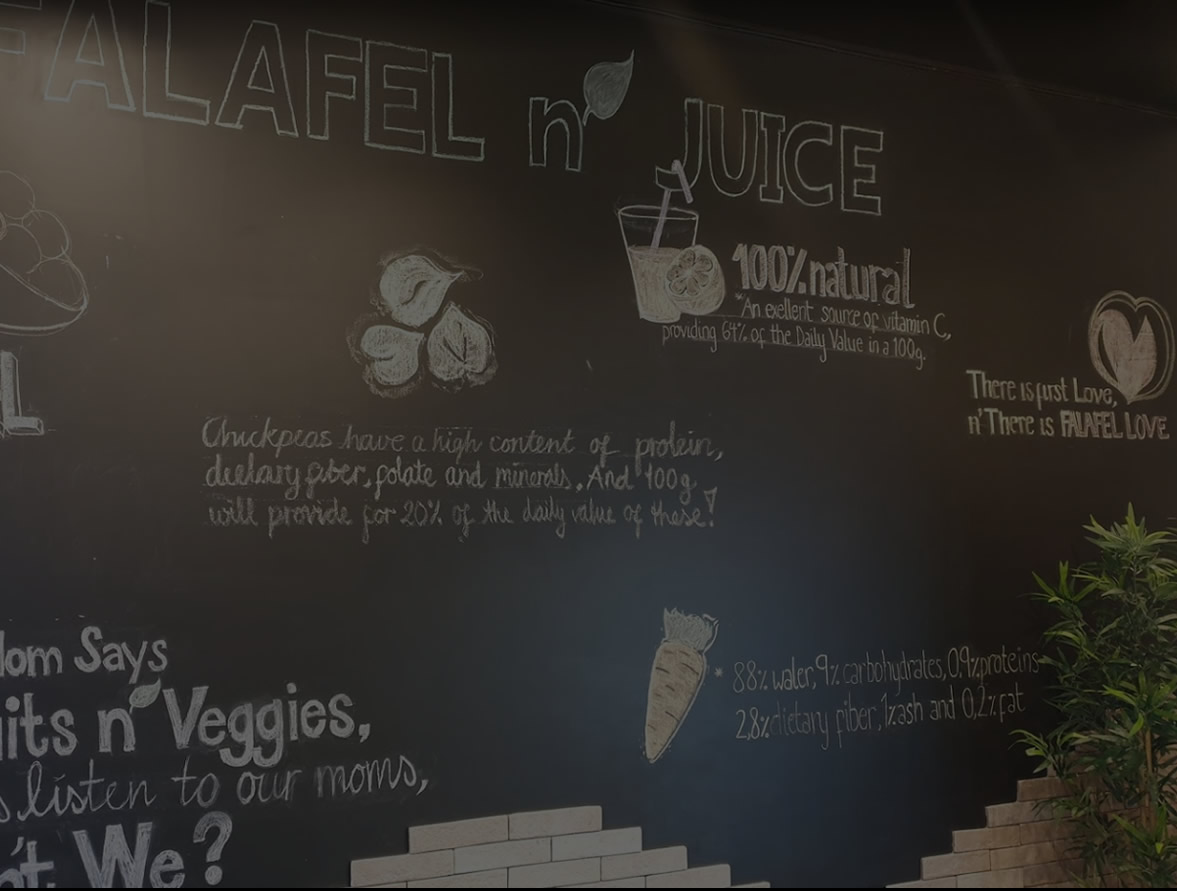 FALAFEL n' JUICE
100% natural
*An exellent source of vitamin C,
providing 64% of the Daily Value in a 100g.
There is first Love,
n' There is FALAFEL LOVE
L
Chickpeas have a high content of protein,
dietary fiber, folate and minerals. And 100g
will provide for 20% of the daily value of these!
* 88% water, 9% carbohydrates, 0.9% proteins
2,8% dietary fiber, 1% ash and 0,2% fat
Mom Says
uits n' Veggies,
s listen to our moms,
't We?